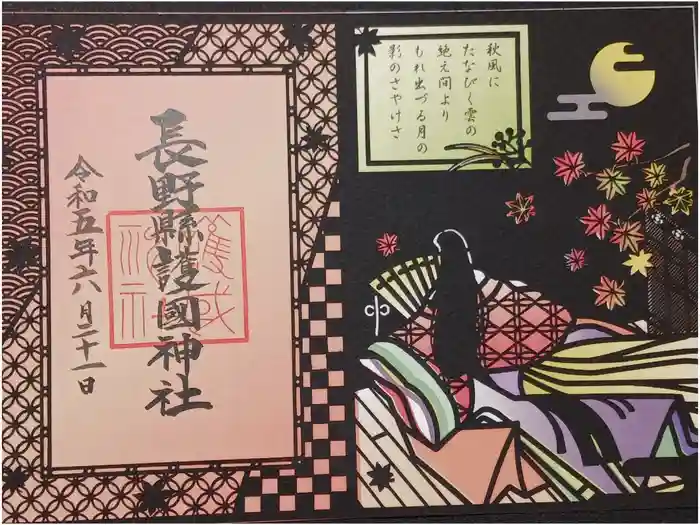 秋風に
たなびく雲の
絶え間より
もれ出づる月の
影のさやけさ
長野縣護國神社
令和五年六月二十一日